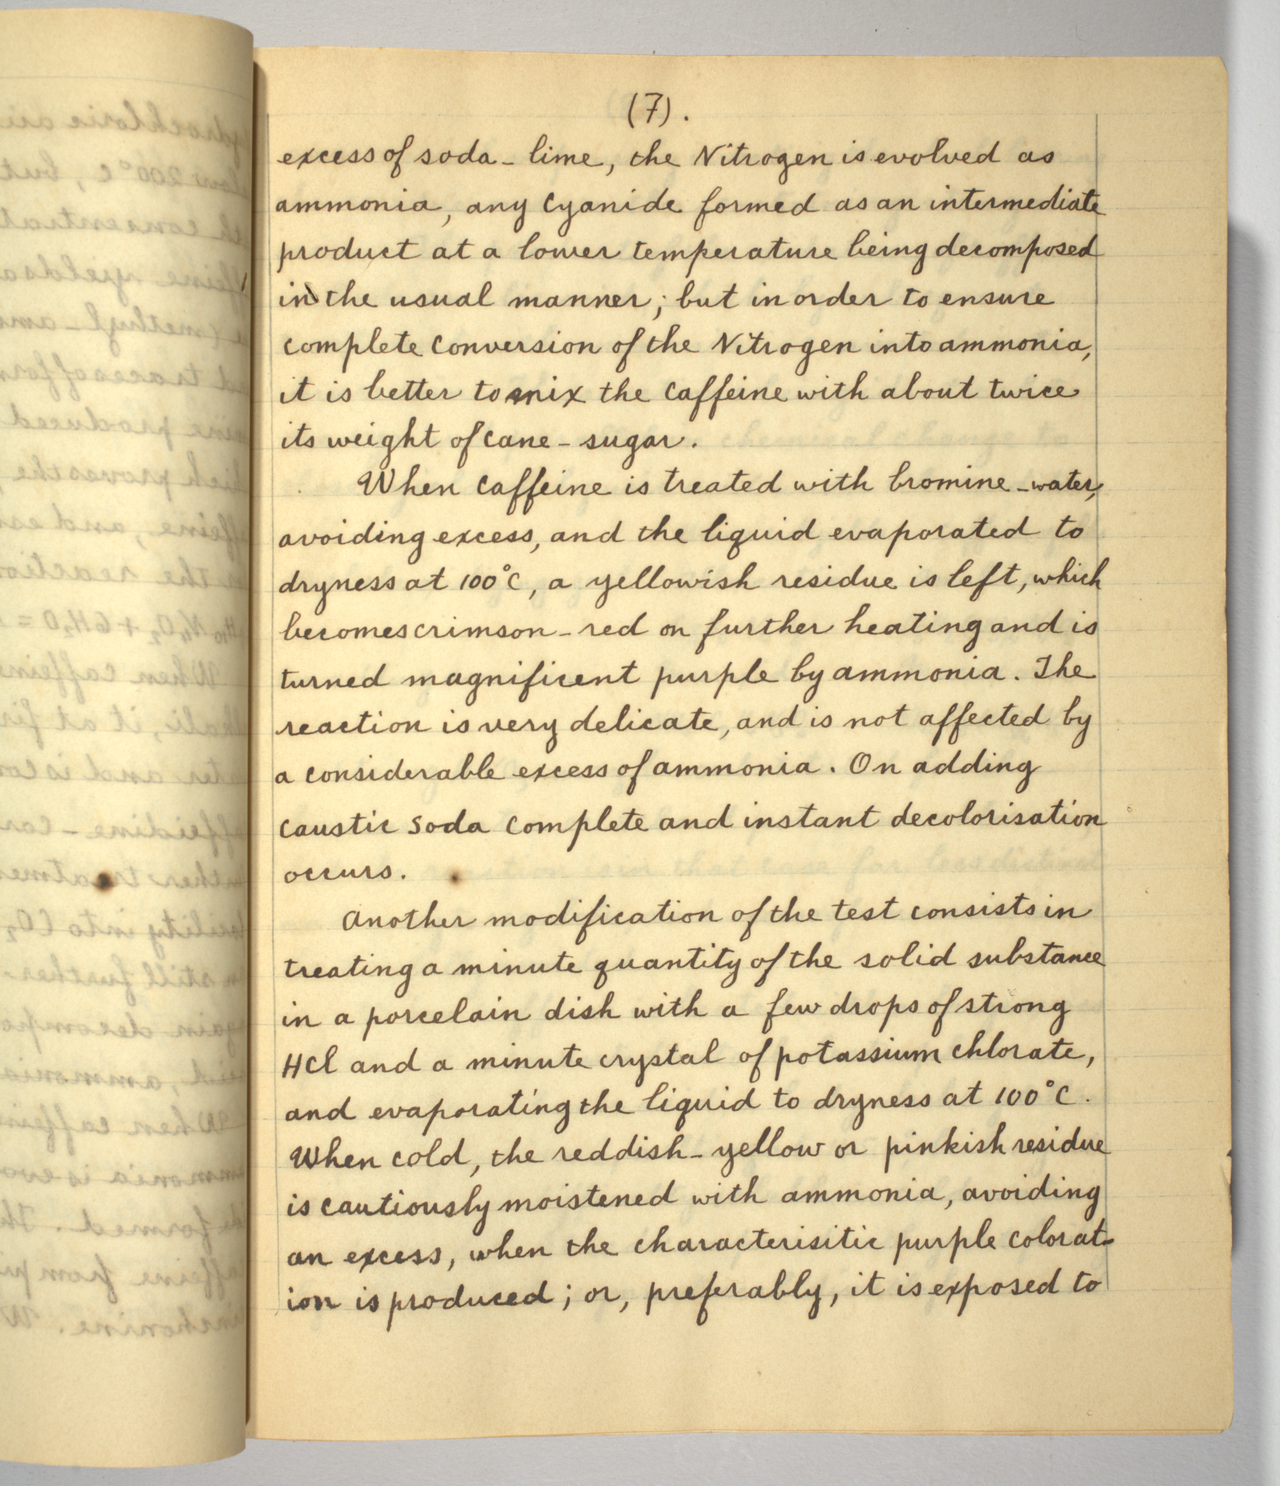 (7).
excess of soda-lime, the Nitrogen is evolved as
ammonia, any Cyanide formed as an intermediate
product at a lower temperature being decomposed
in the usual manner; but in order to ensure
complete conversion of the Nitrogen into ammonia,
it is better to mix the caffeine with about twice
its weight of cane-sugar.
When caffeine is treated with bromine-water,
avoiding excess, and the liquid evaporated to
dryness at 100°C, a yellowish residue is left, which
becomes crimson-red on further heating and is
turned magnificent purple by ammonia. The
reaction is very delicate, and is not affected by
a considerable excess of ammonia. On adding
caustic soda complete and instant decolorisation
occurs.
Another modification of the test consists in
treating a minute quantity of the solid substance
in a porcelain dish with a few drops of strong
HCl and a minute crystal of potassium chlorate,
and evaporating the liquid to dryness at 100°C.
When cold, the reddish-yellow or pinkish residue
is cautiously moistened with ammonia, avoiding
an excess, when the characterisitic purple colorat-
ion is produced; or, preferably, it is exposed to